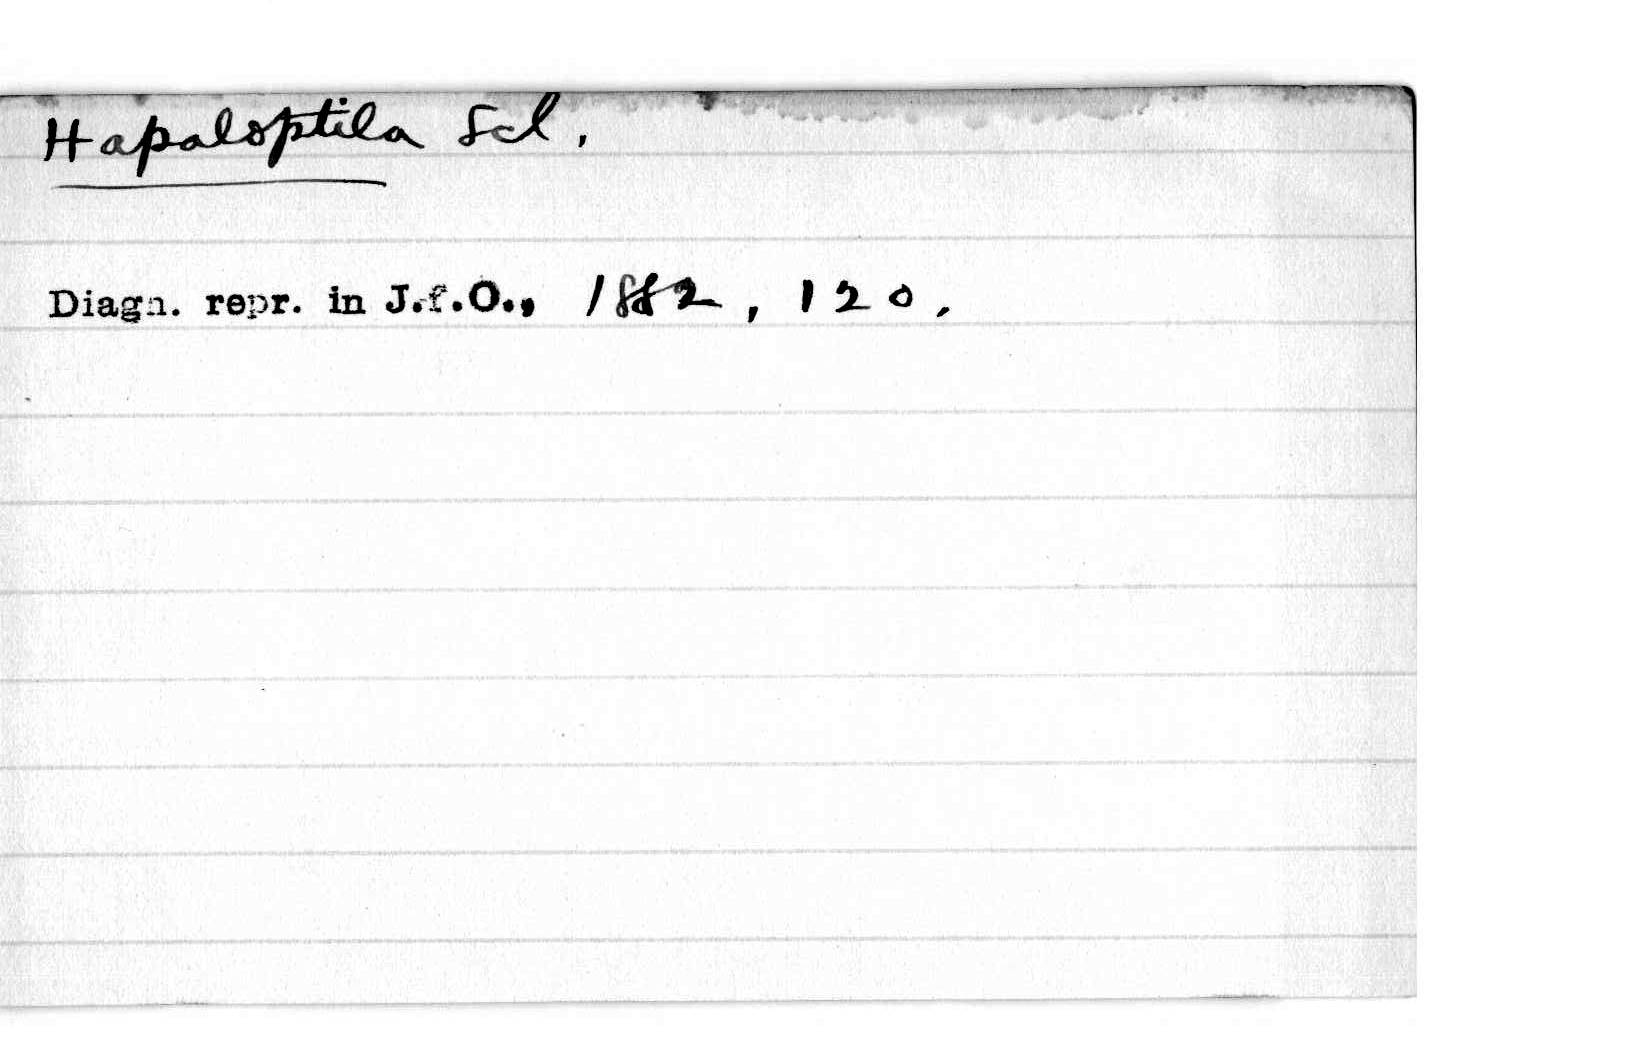 Hapaloptila Scl.
Diagn. repr. in J.f.O., 1882, 120.